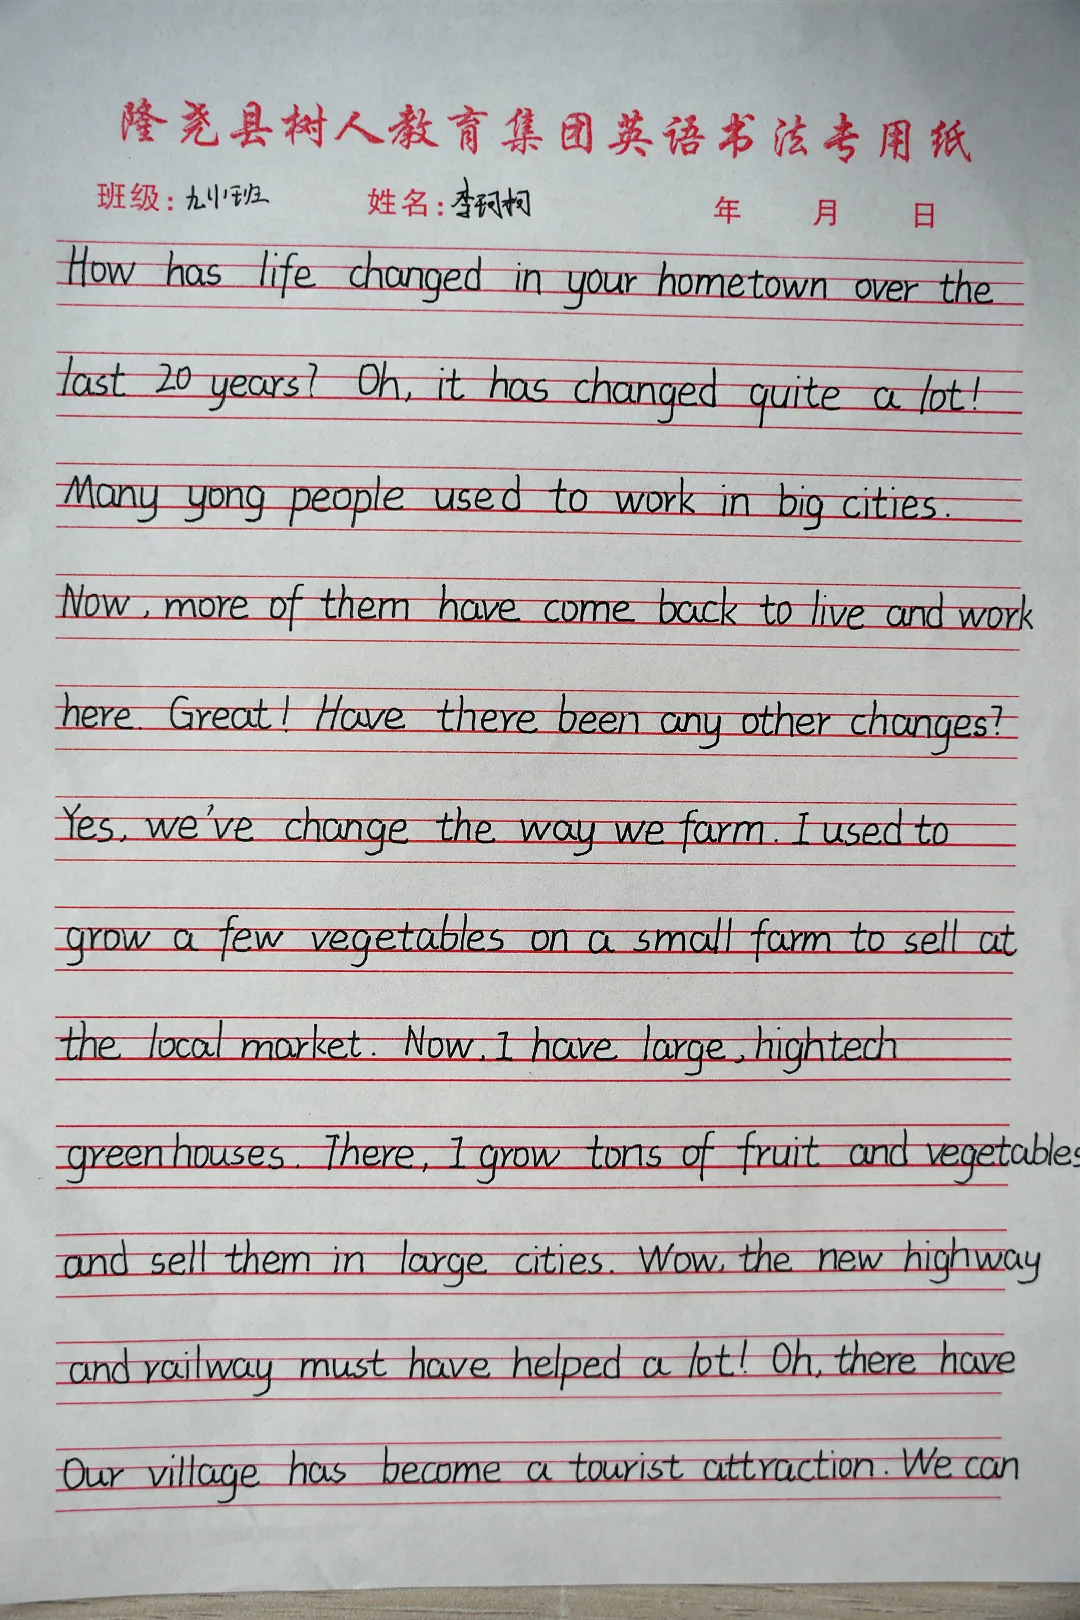 隆尧县树人教育集团英语书法专用纸
班级: 九小班 姓名: 李珂柯 年 月 日
How has life changed in your hometown over the
last 20 years? Oh, it has changed quite a lot!
Many yong people used to work in big cities.
Now, more of them have come back to live and work
here. Great! Have there been any other changes?
Yes, we've change the way we farm. I used to
grow a few vegetables on a small farm to sell at
the local market. Now, I have large, hightech
greenhouses. There, I grow tons of fruit and vegetables
and sell them in large cities. Wow, the new highway
and railway must have helped a lot! Oh, there have
Our village has become a tourist attraction. We can